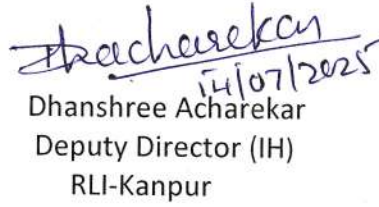 DAcharekar
14/07/2025
Dhanshree Acharekar
Deputy Director (IH)
RLI-Kanpur